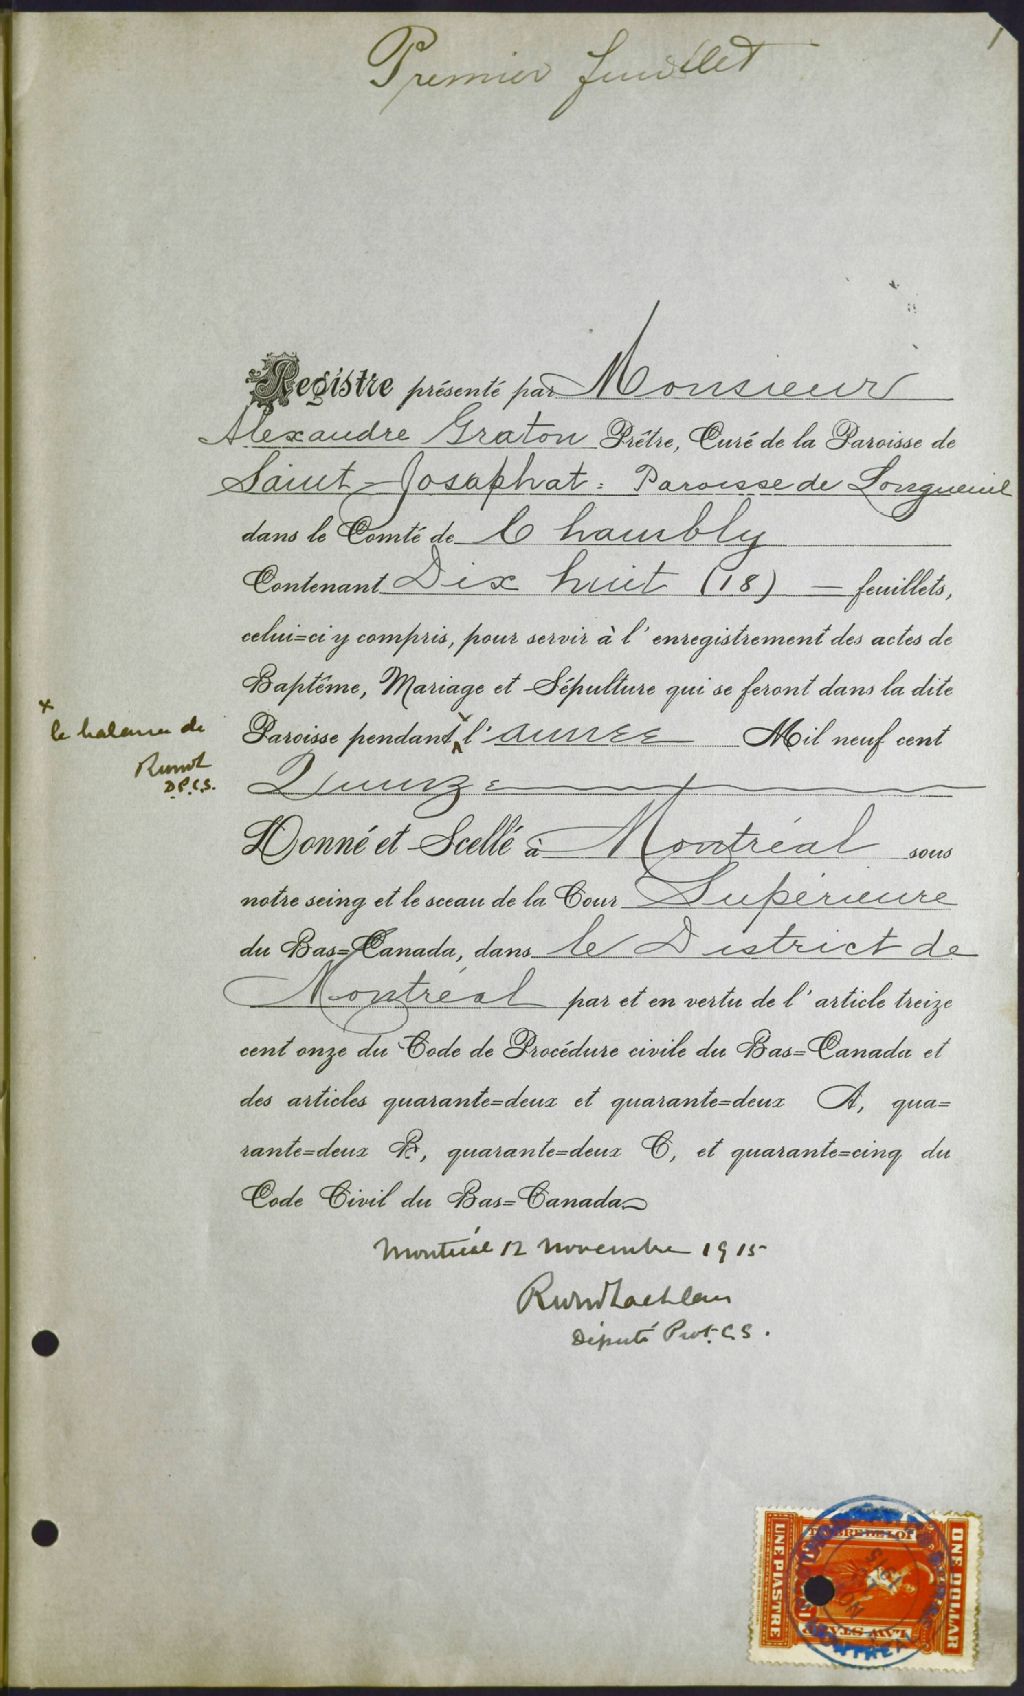 Premier feuillet
1
Registre présenté par Monsieur
Alexandre Graton Prêtre, Curé de la Paroisse de
Saint-Josaphat: Paroisse de Longueuil
dans le Comté de Chambly
Contenant Dix huit (18) = feuillets,
celui=ci y compris, pour servir à l'enregistrement des actes de
Baptême, Mariage et Sépulture qui se feront dans la dite
x
la balance de
D.P.C.S.
Paroisse pendant x l'année Mil neuf cent
Quinze
Donné et Scellé à Montréal sous
notre seing et le sceau de la Cour Supérieure
du Bas=Canada, dans le District de
Montréal par et en vertu de l'article treize
cent onze du Code de Procédure civile du Bas=Canada et
des articles quarante=deux et quarante=deux A, qua=
rante=deux B, quarante=deux C, et quarante=cinq du
Code Civil du Bas=Canada
Montréal 12 novembre 1915
Député Prot. C.S.
TIMBRE DE LOI
UNE PIASTRE
ONE DOLLAR
LAW STAMP
NOV
1915
MONTREAL